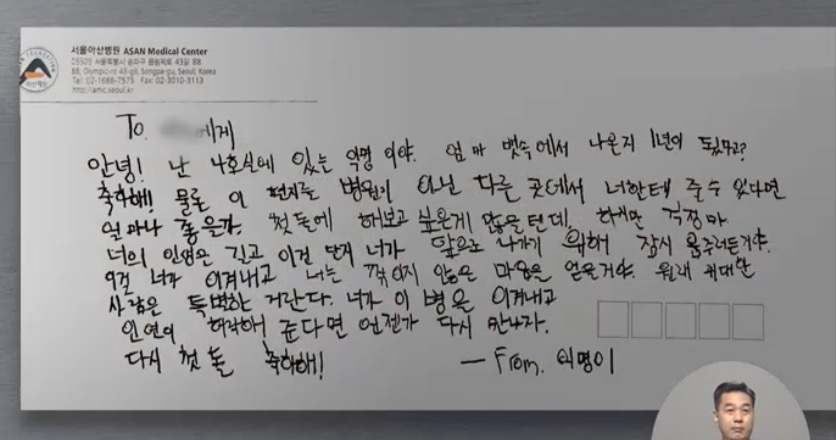 서울아산병원 ASAN Medical Center
05505 서울특별시 송파구 올림픽로 43길 88
88, Olympic-ro 43-gil, Songpa-gu, Seoul, Korea
Tel: 02-1688-7575 Fax: 02-3010-3113
http://amc.seoul.kr
To. 에게
안녕! 난 나호실에 있는 익명이야. 엄마 뱃속에서 나온지 1년이 됬다고?
축하해! 물론 이 편지를 병원이 아닌 다른 곳에서 너한테 줄 수 있다면
얼마나 좋을까. 첫 돌에 해보고 싶은게 많을텐데. 하지만 걱정마
너의 인생은 길고 이건 단지 너가 앞으로 나가기 위해 잠시 움추려든거야.
이걸 너가 이겨내고 너는 꺾이지 않은 마음을 얻을거야. 원래 위대한
사람은 특별하는 거란다. 너가 이 병을 이겨내고
인연이 허락해 준다면 언젠가 다시 만나자.
다시 첫 돌 축하해!
— From. 익명이